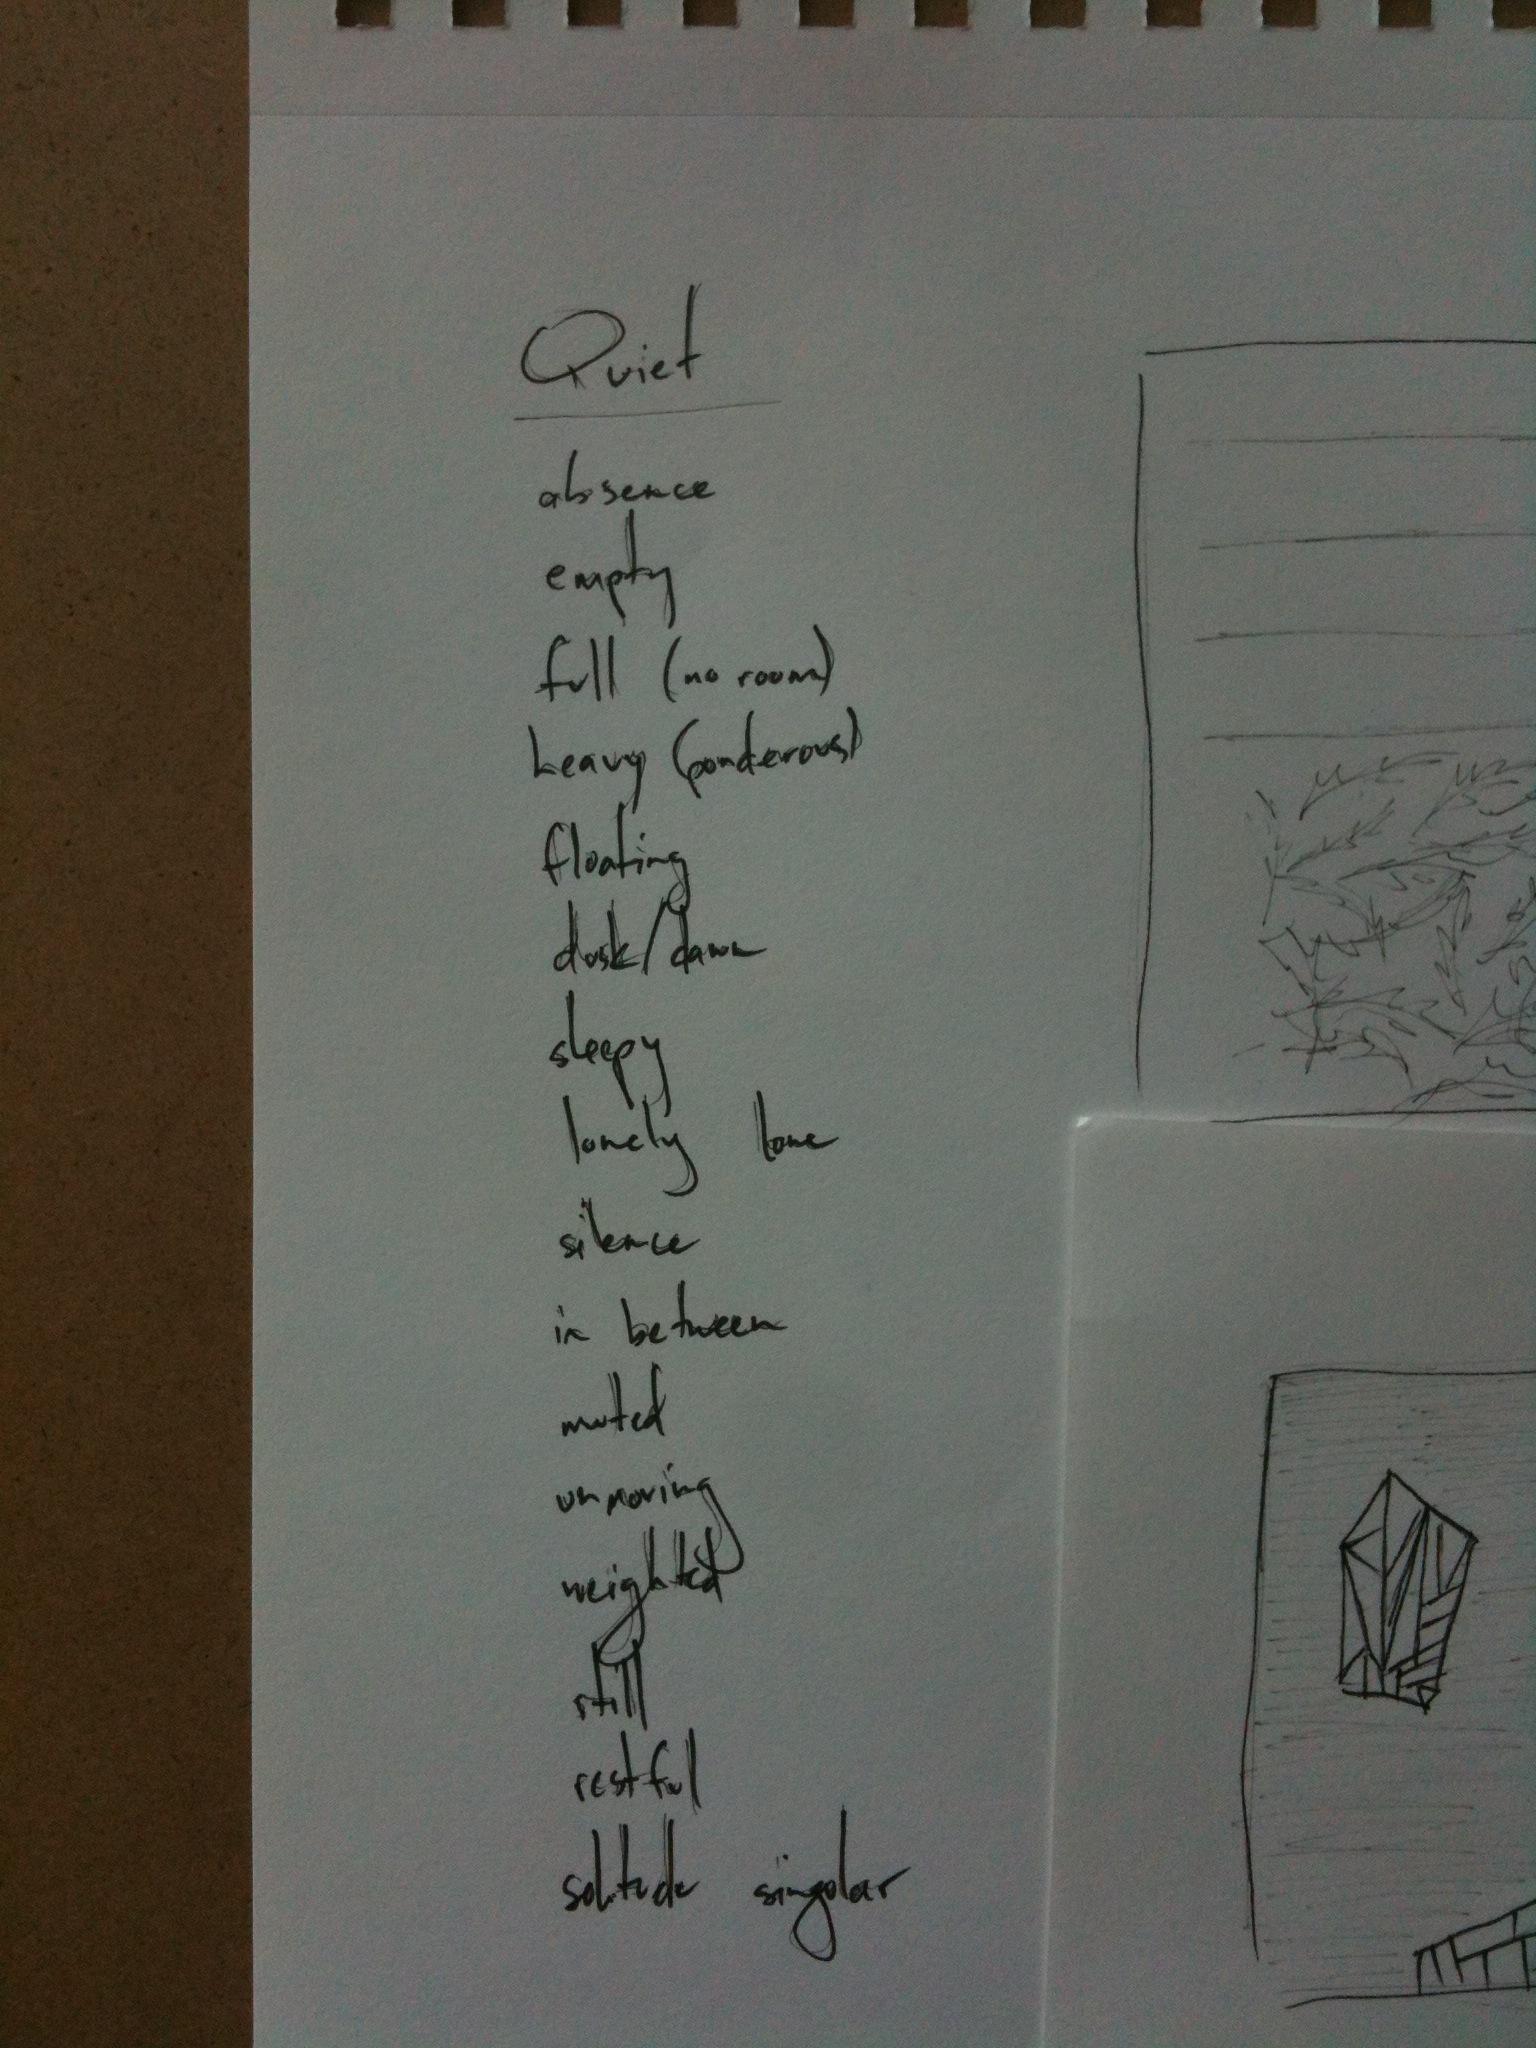 Quiet
absence
empty
full (no room)
heavy (ponderous)
floating
dusk/dawn
sleepy
lonely lone
silence
in between
muted
unmoving
weighted
still
restful
solitude singular